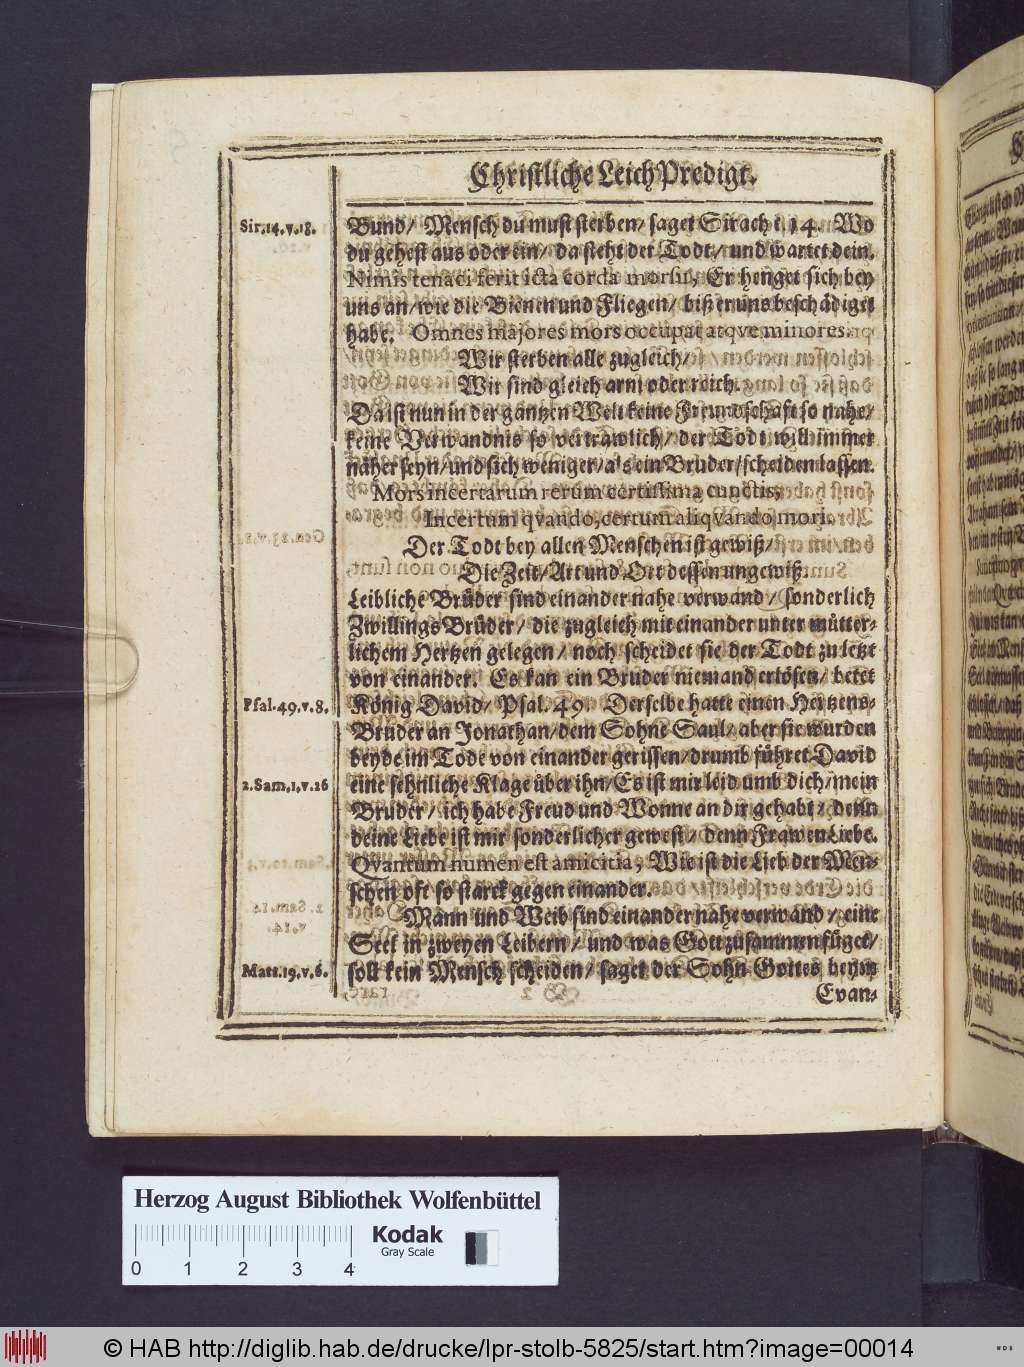 Christliche LeichPredigt.
Sir.14.v.18.
Bund/ Mensch du must sterben/ saget Sirach c. 14. Wo
du gehest aus oder ein/ da steht der Todt/ und wartet dein.
Nimis tenaci ferit icta corda morsu, Er henget sich bey
uns an/ wie die Bienen und Fliegen/ biß er uns beschädiget
habe. Omnes majores mors occupat atqve minores.
Wir sterben alle zugleich/
Wir sind gleich arm oder reich.
Da ist nun in der gantzen Welt keine Freundschaft so nahe/
keine Verwandnis so vertrawlich/ der Todt will immer
näher seyn/ und sich weniger/ als ein Bruder/ scheiden lassen.
Mors incertarum rerum certissima cunctis,
Incertum qvando, certum aliqvando mori.
Der Todt bey allen Menschen ist gewiß/
Die Zeit/ Art und Ort dessen ungewiß.
Leibliche Brüder sind einander nahe verwand/ sonderlich
Zwillings Brüder/ die zugleich mit einander unter mütter-
lichem Hertzen gelegen/ noch scheidet sie der Todt zu letzt
von einander. Es kan ein Bruder niemand erlösen/ betet
Psal.49.v.8.
König David/ Psal. 49. Derselbe hatte einen Hertzens-
Bruder an Jonathan/ dem Sohne Saul/ aber sie wurden
beyde im Tode von einander gerissen/ drumb führet David
2.Sam,1,v.26
eine sehnliche Klage über ihn/ Es ist mir leid umb dich/ mein
Bruder/ ich habe Freud und Wonne an dir gehabt/ denn
deine Liebe ist mir sonderlicher gewest/ denn Frawen Liebe.
Qvantum numen est amicitia, Wie ist die Lieb der Men-
schen oft so starck gegen einander.
Mann und Weib sind einander nahe verwand/ eine
Seel in zweyen Leibern/ und was Gott zusammen füget/
Matt.19.v.6.
soll kein Mensch scheiden/ saget der Sohn Gottes beym
Evan-
Herzog August Bibliothek Wolfenbüttel
Kodak
Gray Scale
0 1 2 3 4
© HAB http://diglib.hab.de/drucke/lpr-stolb-5825/start.htm?image=00014